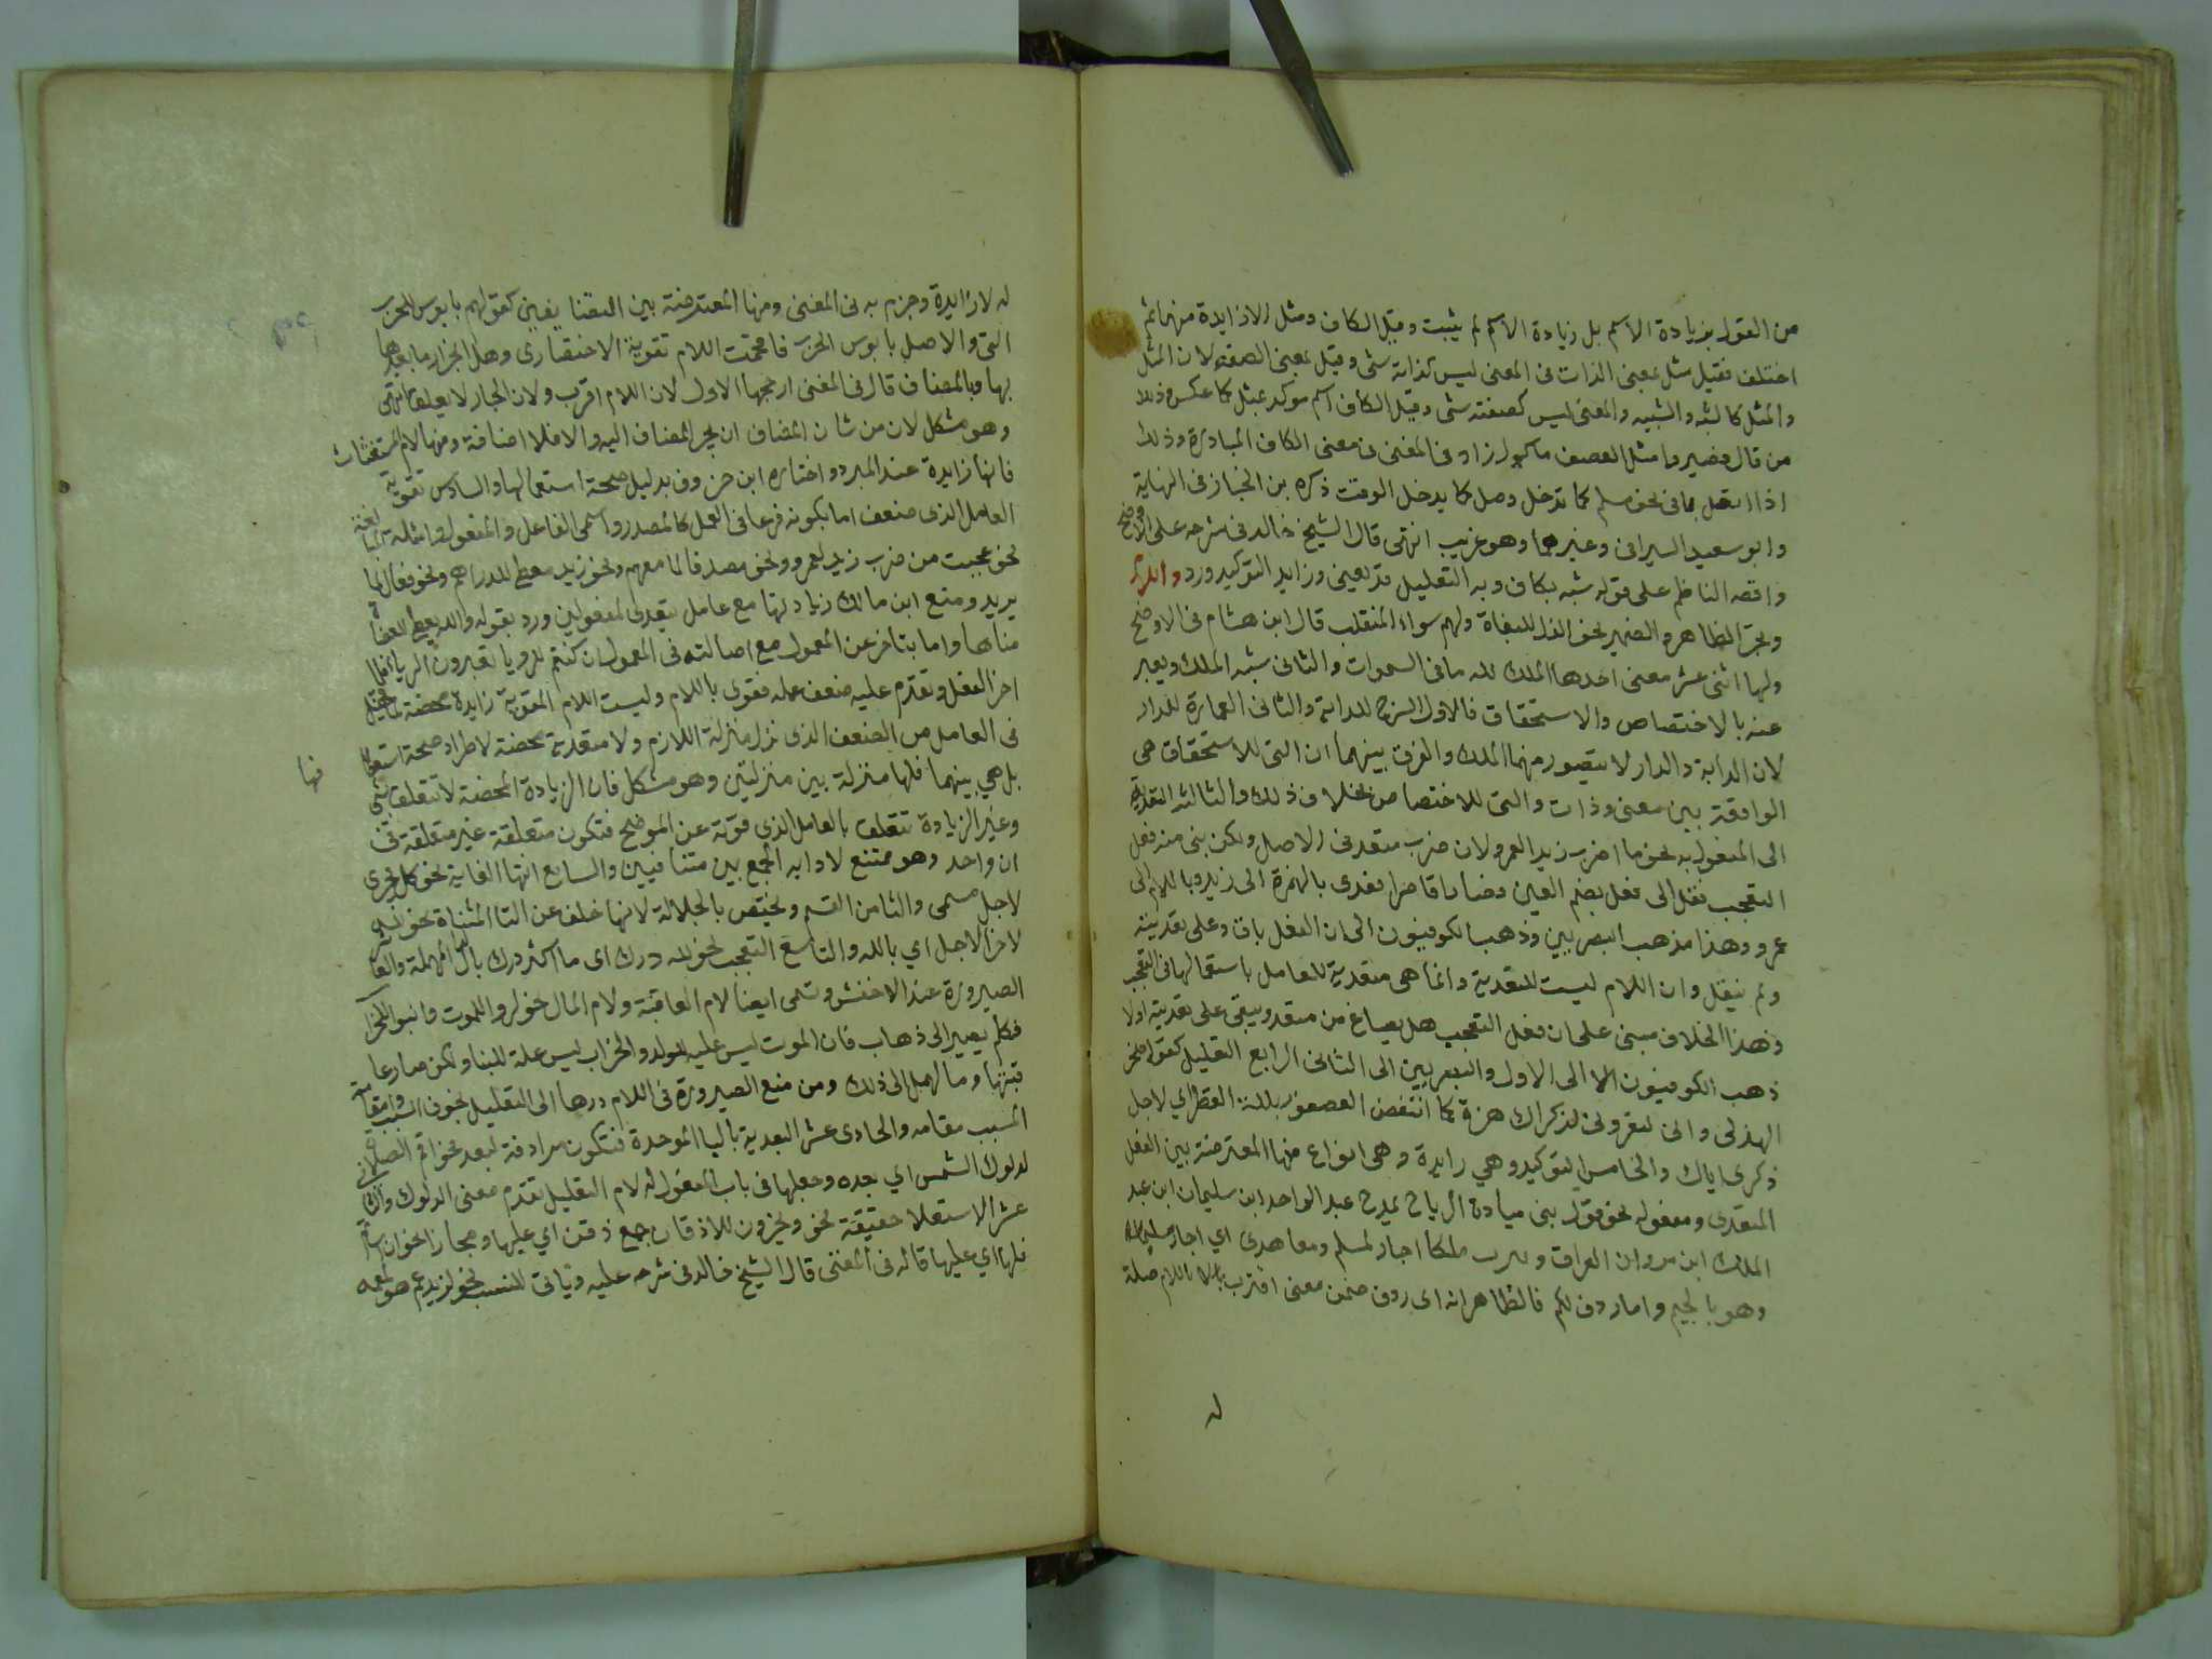 من القول بزيادة الاسم بل زيادة الاسم لم يثبت وقيل الكاف ومثل لازايدة منهما ثم
اختلف فقيل مثل بمعنى الذات في المعنى ليس كذاته شي وقيل بمعنى الصفة لان المثل
والمثل كالشبه والشبيه والمعنى ليس كصفته شي وقيل الكاف اسم موكد بمثل كما عكس ذلك
من قال فصيروا مثل كعصف ماكول زاد في المغني في معنى الكاف المبادرة وذلك
اذا اتصل بما في نحو سلم كما تدخل وصل كما يدخل الوقت ذكره بن الخباز في النهاية
وابو سعيد السيرافي وغيرهما وهو غريب انتهى قال الشيخ خالد في شرحه على الاوضح
واقصه الناظم على قوله شبه بكاف وبه التعليل قد يعني وزايد التوكيد ورد واللام
وبجر الظاهر والضمير نحو الذل للبغاة ولهم سواء المنقلب قال ابن هشام في الاوضح
ولها اثنى عشر معنى احدها الملك لله ما في السموات والثاني شبه الملك ويعبر
عنه بالاختصاص والاستحقاق فالاول السرج للدابة والثاني العمارة للدار
لان الدابة والدار لا يتصور منهما الملك والفرق بينهما ان التي للاستحقاق هي
الواقعة بين معنى وذات والتي للاختصاص بخلاف ذلك والثالث التعدية
الى المفعول به نحو ما اضرب زيدا لعمرو لان ضرب متعد في الاصل ولكن بني منه فعل
التعجب نقل الى فعل بضم العين فصار قاصرا فعدى بالهمزة الى زيد وباللام الى
عمرو وهذا مذهب البصريين وذهب الكوفيون الى ان الفعل باق وعلى تعديته
ولم ينقل وان اللام ليست للتعدية وانما هي مقوية للعامل باستعمالها في التعجب
وهذا الخلاف مبني على ان فعل التعجب هل يصاغ من متعد ويبقى على تعديته اولا
ذهب الكوفيون الا الى الاول والبصريين الى الثاني الرابع التعليل كقول ابي صخر
الهذلي واني لتعروني لذكراك هزة كما انتفض العصفور بلله القطر اي لاجل
ذكرى اياك والخامس التوكيد وهي زايدة وهي انواع منها المعترضة بين الفعل
المتعدي ومفعوله نحو قول بني ميادة الرياح يمدح عبد الواحد ابن سليمان ابن عبد
الملك ابن مروان العراق ويثرب ملكا اجار لمسلم ومعاهدى اي اجار مسلما
وهو بالجيم واما ردف لكم فالظاهر انه اي ردف ضمن معنى اقترب باللام صلة
له
له لا زايدة وجزم به في المغني ومنها المعترضة بين المتضايفين كقولهم يا بوس للحرب
التي والاصل يا بوس الحرب فاقحمت اللام تقوية للاختصاص وهل انجرار ما بعدها
بها وبالمضاف قال في المغني ارجحها الاول لان اللام اقرب ولان الجار لا يعلق انتهى
وهو مشكل لان من شان المضاف ان يجر المضاف اليه والا فلا اضافة ومنها لام المستغثات
فانها زايدة عند المبرد واختاره ابن خروف بدليل صحة استعمالها والسادس تقوية
العامل الذي ضعف اما بكونه فرعا في العمل كالمصدر واسمى الفاعل والمفعول وامثلة المبالغة
نحو عجبت من ضرب زيد لعمرو ونحو مصدقا لما معهم ونحو زيد معطي للدراهم ونحو فعال لما
يريد ومنع ابن مالك زيادتها مع عامل يتعدى لمفعولين ورد بقوله والله يعطي للعصاة
مناها واما بتاخر عن المعمول مع اصالته في المعمول ان كنتم للرويا تعبرون الرويا فلما
اخر الفعل وتقدم عليه ضعف عمله فقوى باللام وليست اللام المقوية زايدة محضة لما تخيل
في العامل من الضعف الذي نزل منزلة اللازم ولا متعدية محضة لاطراد صحة اسقاطها
بل هي بينهما فلها منزلة بين منزلتين وهو مشكل فان الزيادة المحضة لا تتعلق بشي
وغير الزيادة تتعلق بالعامل الذي قوته عن الموضح فتكون متعلقة غير متعلقة في
ان واحد وهو ممتنع لادايه الجمع بين متنافيين والسابع انتها الغاية نحو كل يجري
لاجل مسمى والثامن القسم ويختص بالجلالة لانها خلف عن التا المثناة نحو لله
لا يوخر الاجل اي بالله والتاسع التعجب نحو لله درك اي ما اكثر درك بالدال المهملة والعاشر
الصيرورة عند الاخفش وتسمى ايضا لام العاقبة ولام المال نحو لدوا للموت وابنوا للخراب
فكلم يصير الى ذهاب فان الموت ليس علة للولد والخراب ليس علة للبنا ولكن صار عا
قبتها ومالهما الى ذلك ومن منع الصيرورة في اللام ردها الى التعليل بحذف السبب واقامة
المسبب مقامه والحادي عشر البعدية بالبا الموحدة فتكون مرادفة لبعد نحو اقم الصلاة
لدلوك الشمس اي بعده وجعلها في باب المفعول له لام التعليل تقدم معنى الدلوك والثاني
عشر الاستعلا حقيقة نحو ويخرون للاذقان جمع ذقن اي عليها ومجازا نحو وان اساتم
فلها اي عليها قاله في المغني قال الشيخ خالد في شرحه عليه وتاتي للنسب نحو لزيد عم هو لعمه